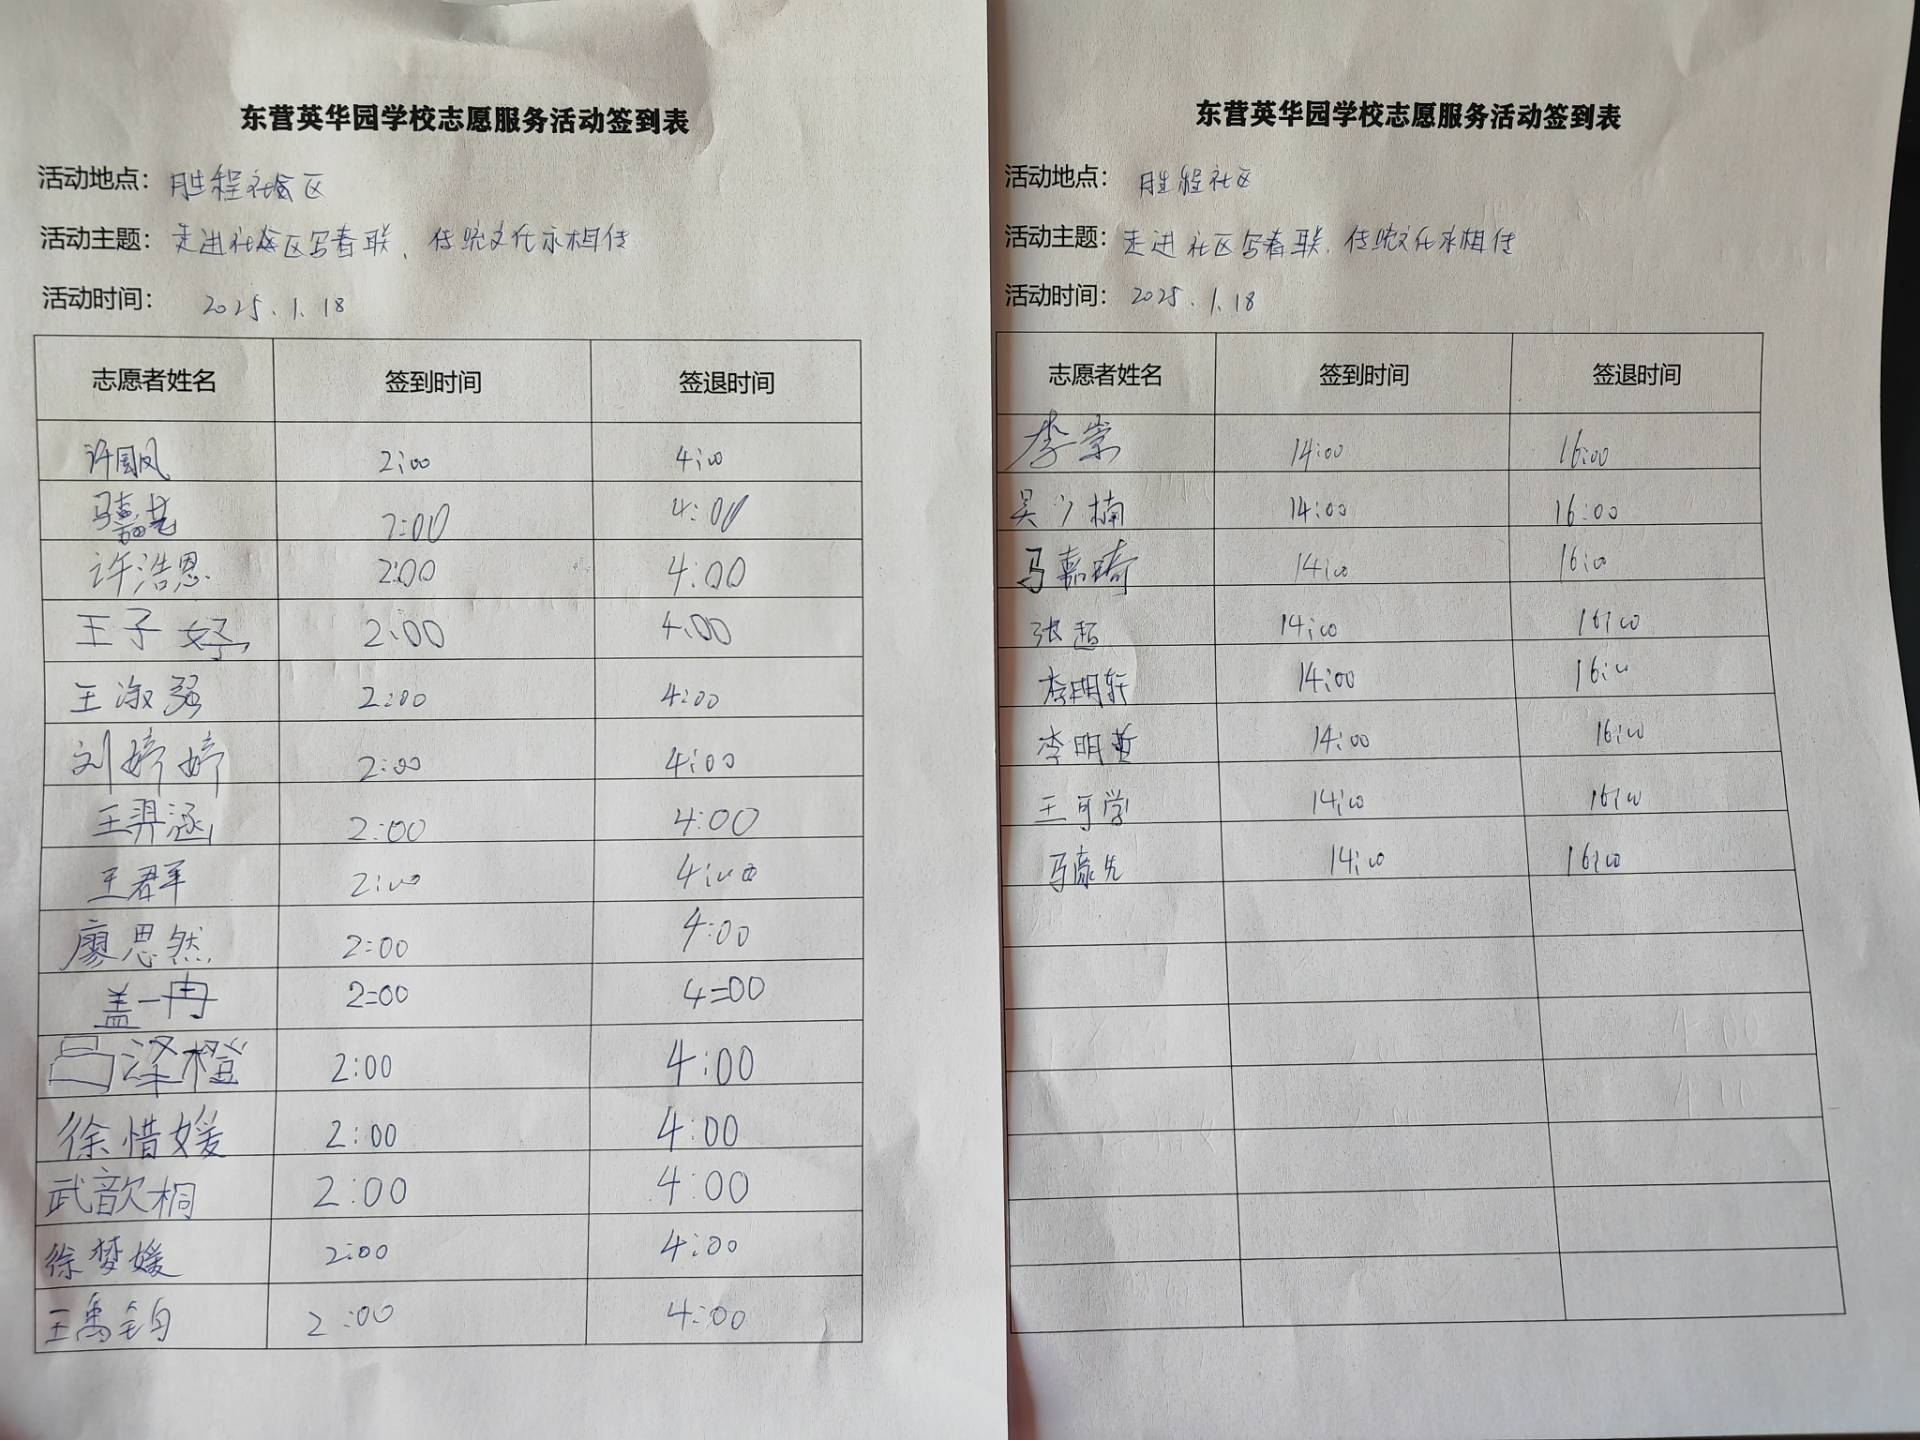 东营英华园学校志愿服务活动签到表
活动地点： 胜程社区
活动主题： 走进社区写春联、传统文化永相传
活动时间： 2025.1.18
志愿者姓名 签到时间 签退时间
许国凤 2:00 4:00
马嘉艺 2:00 4:00
许浩恩 2:00 4:00
王子妤 2:00 4:00
王淑强 2:00 4:00
刘婷婷 2:00 4:00
王羿涵 2:00 4:00
王君军 2:00 4:00
廖思然 2:00 4:00
盖一冉 2=00 4=00
吕泽橙 2:00 4:00
徐惜媛 2:00 4:00
武歆桐 2:00 4:00
徐梦媛 2:00 4:00
王禹钧 2:00 4:00
东营英华园学校志愿服务活动签到表
活动地点： 胜程社区
活动主题： 走进社区写春联、传统文化永相传
活动时间： 2025.1.18
志愿者姓名 签到时间 签退时间
李崇 14:00 16:00
吴少楠 14:00 16:00
马嘉琦 14:00 16:00
张超 14:00 16:00
李明轩 14:00 16:00
李明哲 14:00 16:00
王可学 14:00 16:00
马 先 14:00 16:00